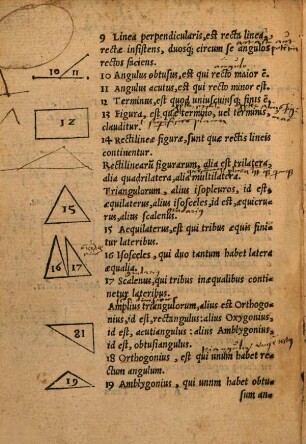 9 Linea perpendicularis, est recta linea
rectæ insistens, duosq; circum se angulos
rectos faciens.
10 Angulus obtusus, est qui recto maior ē.
11 Angulus acutus, est qui recto minor est.
12 Terminus, est quod uniuscuiusq; finis ē.
13 Figura, est quæ termino, uel terminis
clauditur.
14 Rectilineæ figuræ, sunt quæ rectis lineis
continentur.
Rectilinearū figurarum, alia est trilatera,
alia quadrilatera, alia multilatera.
Triangulorum, alius isopleuros, id est
æquilaterus, alius isosceles, id est, æquicru-
rus, alius scalenus.
15 Aequilaterus, est qui tribus æquis fini-
tur lateribus.
16 Isosceles, qui duo tantum habet latera
æqualia.
17 Scalenus, qui tribus inæqualibus conti-
netur lateribus.
Amplius triangulorum, alius est Orthogo-
nius, id est, rectangulus: alius Oxygonius,
id est, acutiangulus: alius Amblygonius,
id est, obtusiangulus.
18 Orthogonius, est qui unum habet re-
ctum angulum.
19 Amblygonius, qui unum habet obtu-
sum an-
10 11
12
15
16 17
18
19